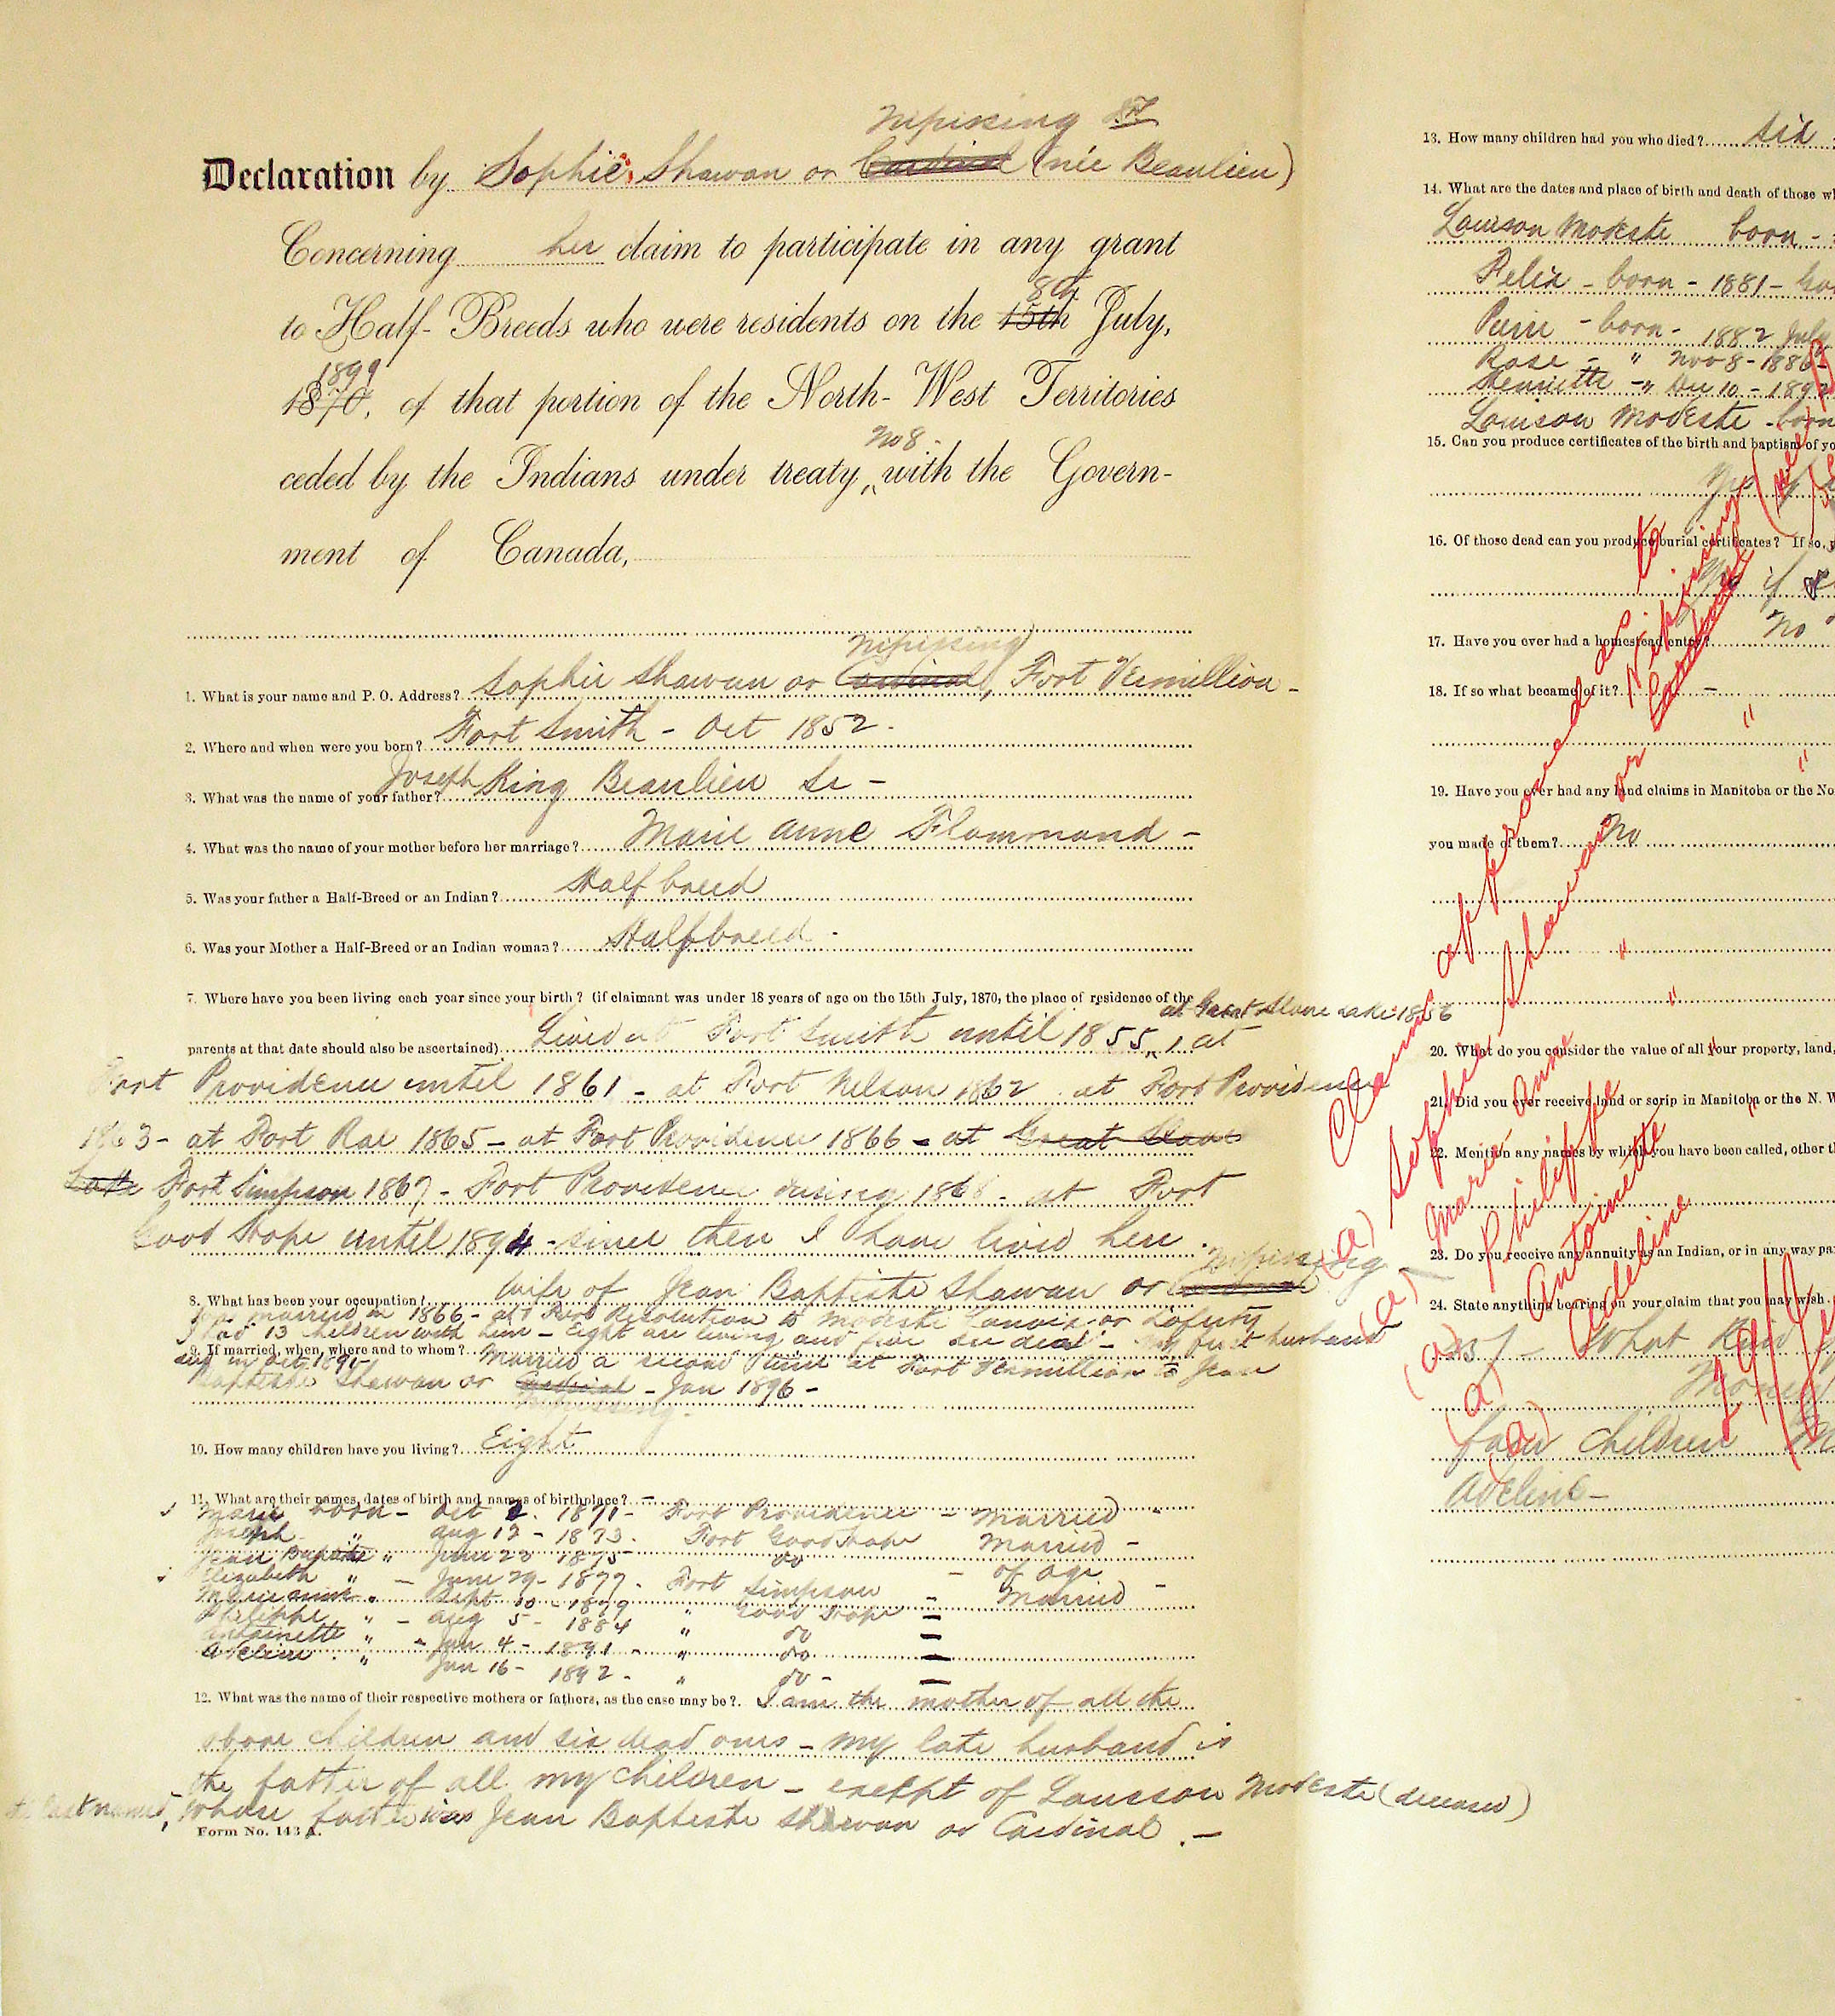 Nipissing
Declaration by Sophie Shawan or Cardinal (née Beaulieu)
Concerning her claim to participate in any grant
8th
to Half-Breeds who were residents on the 15th July,
1899
1870, of that portion of the North-West Territories
No 8
ceded by the Indians under treaty, with the Govern-
ment of Canada,
Nipissing
1. What is your name and P. O. Address? Sophie Shawan or Cardinal, Fort Vermillion -
2. Where and when were you born? Fort Smith - Oct 1852 -
3. What was the name of your father? Joseph King Beaulieu Sr -
4. What was the name of your mother before her marriage? Marie Anne Flammand -
5. Was your father a Half-Breed or an Indian? Half breed
6. Was your Mother a Half-Breed or an Indian woman? Halfbreed -
7. Where have you been living each year since your birth? (if claimant was under 18 years of age on the 15th July, 1870, the place of residence of the
at Great Slave Lake 1856
parents at that date should also be ascertained) Lived at Fort Smith until 1855, at
Fort Providence until 1861 - at Fort Nelson 1862 at Fort Providence
1863 - at Fort Rae 1865 - at Fort Providence 1866 - at Great Slave
Lake Fort Simpson 1867 - Fort Providence during 1868 - at Fort
Good Hope until 1894 - since then I have lived here.
Nipissing
8. What has been your occupation? Wife of Jean Baptiste Shawan or Cardinal
married in 1866 - at Fort Resolution to Modeste or Laferty
I had 13 children with him - Eight are living and five are dead - my first husband
9. If married, when, where and to whom? Married a second time at Fort Vermillion to Jean
died in Oct 1890 -
Baptiste Shawan or Cardinal - Jan 1896 -
Nipissing -
10. How many children have you living? Eight
11. What are their names, dates of birth and names of birthplace? -
Marie born - Oct 2. 1871 - Fort Providence - Married -
Joseph " Aug 12 - 1873. Fort Good Hope Married -
Jean Baptiste " June 23 1875 do - of age
Elizabeth " - June 29 - 1877. Fort Simpson - Married -
Marie Anne " Sept 10 - 1879 " Good Hope -
Philippe " - Aug 5 - 1884 " do -
Antoinette " - Jan 4 - 1891 - " do -
Adeline " Jun 16 - 1892 - " do - -
12. What was the name of their respective mothers or fathers, as the case may be? I am the mother of all the
above children and six dead ones - My late husband is
the father of all my children - except of Louison Modeste (deceased)
the last named, whose father was Jean Baptiste Shawan or Cardinal. -
Form No. 143 A.
13. How many children had you who died? Six
14. What are the dates and place of birth and death of those wh
Louison Modeste born -
Felix - born - 1881 -
Pierre - born - 1882 July
Rose - " Nov 8 - 1886
Henriette - " Dec 10 - 189
Louison Modeste - born
15. Can you produce certificates of the birth and baptism of yo
Yes if
16. Of those dead can you produce burial certificates? If so, p
Yes if
17. Have you ever had a homestead entry? No
18. If so what became of it? -
19. Have you ever had any land claims in Manitoba or the No
you made of them? No
20. What do you consider the value of all your property, land,
21. Did you ever receive land or scrip in Manitoba or the N. W
22. Mention any names by which you have been called, other t
23. Do you receive any annuity as an Indian, or in any way pa
24. State anything bearing on your claim that you may wish.
What kind
Money
four children
Adeline -
Claims approved as to
Nipissing
(a) Sophie Shawan or Cardinal (née
(a) Marie Anne " "
(a) Philippe " "
(a) Antoinette "
(a) Adeline